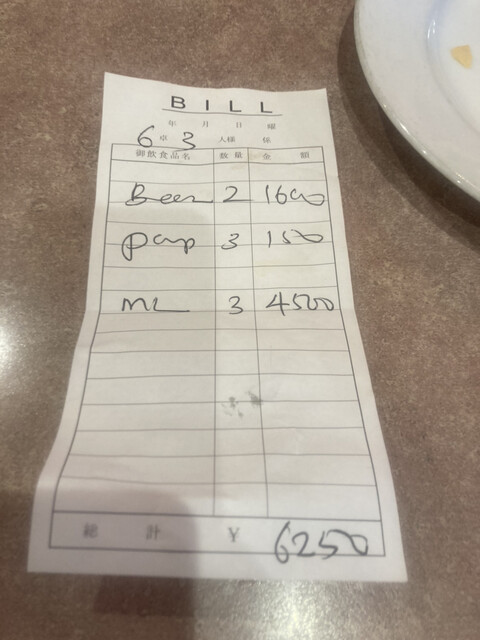 BILL
年 月 日 曜
6 卓 3 人様 係
御飲食品名 数量 金 額
Beer 2 1600
pap 3 150
ML 3 4500
総 計 ¥ 6250